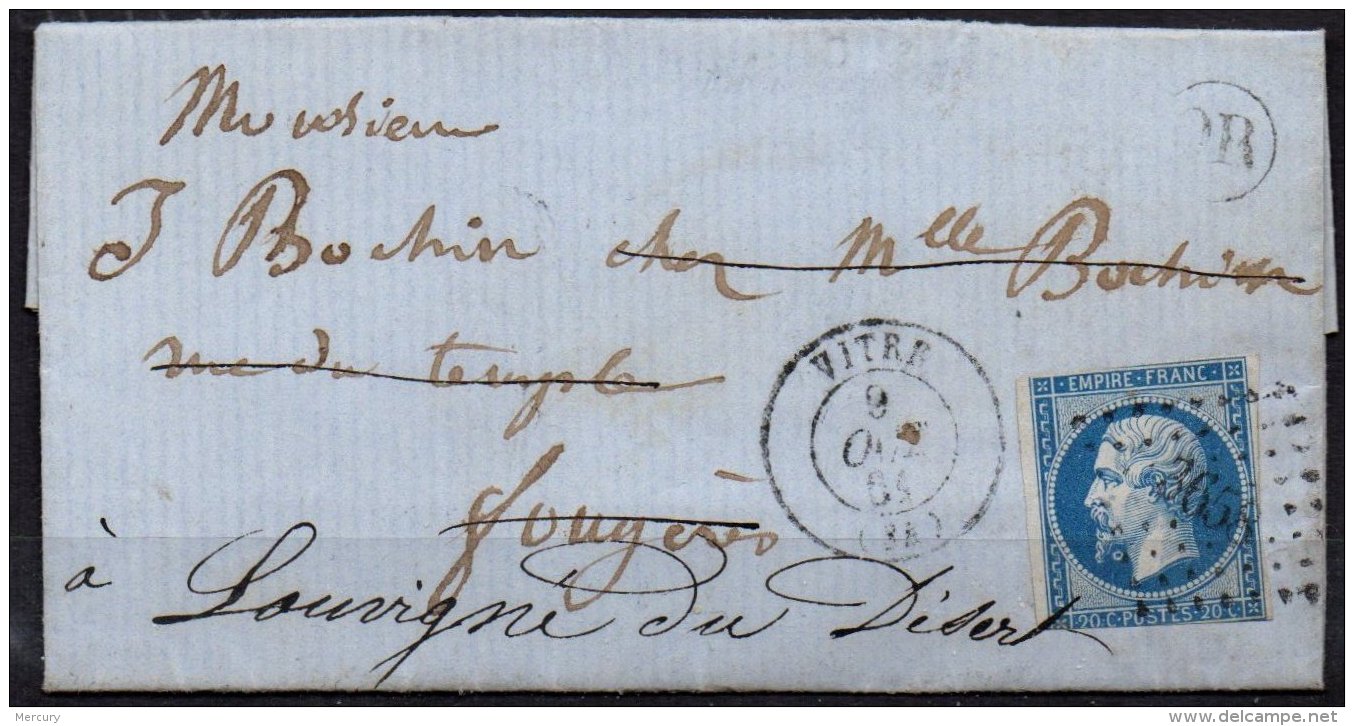 Monsieur
OR
J Bochin chez Mlle Bochin
rue du temple
VITRE
9
(34)
EMPIRE · FRANC ·
365
fougères
20 · C · POSTES · 20 · C ·
à Louvigné du Désert
Mercury
www.delcampe.net